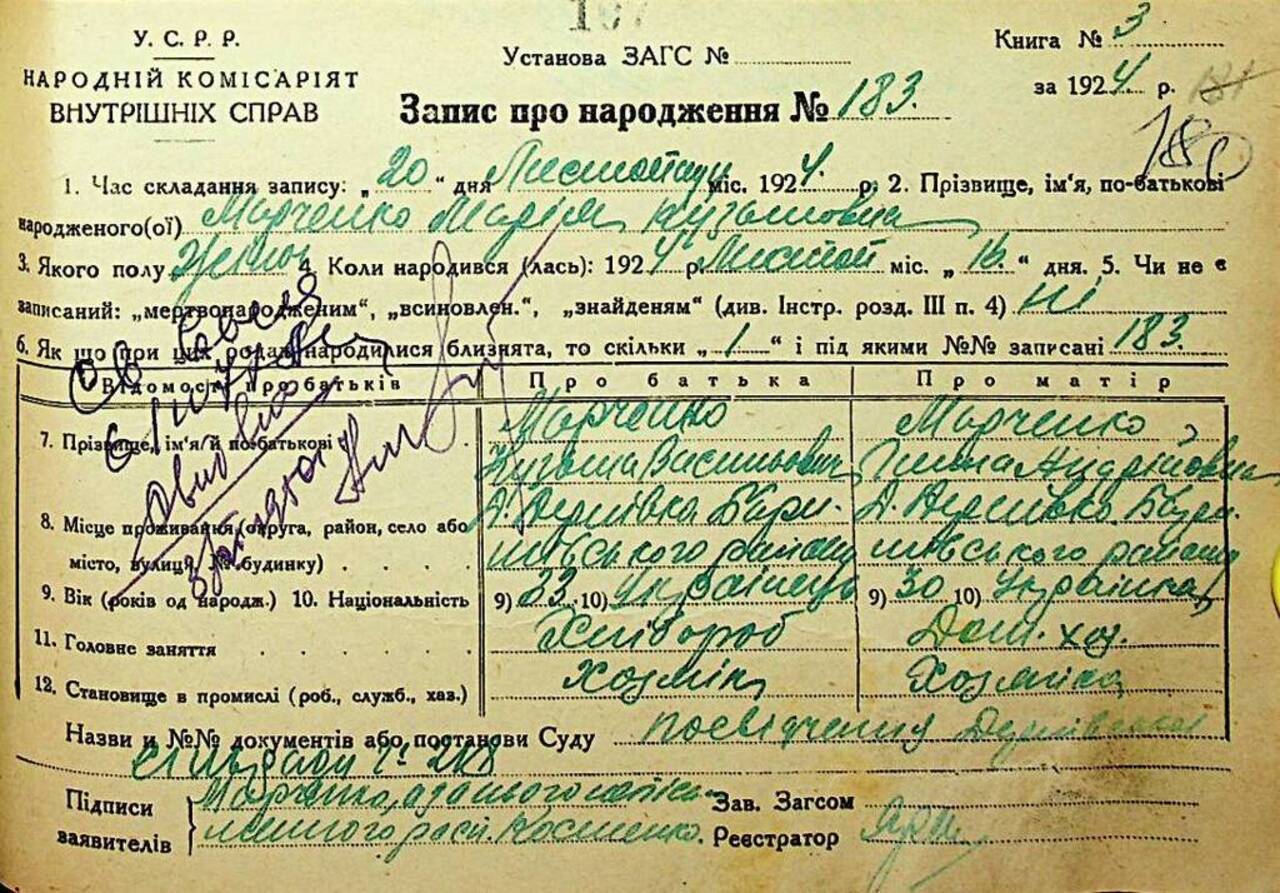 У. С. Р. Р.
НАРОДНІЙ КОМІСАРІЯТ
ВНУТРІШНІХ СПРАВ
Установа ЗАГС №
Книга № 3
за 1924 р.
Запис про народження № 183.
1. Час складання запису: „ 20 “ дня Листопаду міс. 1924 р. 2. Прізвище, ім'я, по-батькові
народженого(ої) Марченко Марія Кузьмовна
3. Якого полу 4. Коли народився (лась): 1924 р. Листоп міс. „ 16. “ дня. 5. Чи не є
записаний: „мертвонародженим“, „всиновлен.“, „знайденям“ (див. Інстр. розд. III п. 4) Ні
6. Як що при цих родах народилися близнята, то скільки „ 1 “ і під якими №№ записані 183.
Відомості про батьків Про батька Про матір
7. Прізвище, ім'я й по-батькові Марченко Марченко
Кузьма Васильович Андрійовна
8. Місце проживання (округа, район, село або Д. Дернівка Бари- Д. Дернівка Бари-
місто, вулиця, № будинку) шівського району шівського району
9. Вік (років од народж.) 10. Національність 9) 33 10) Українець 9) 30 10) Українка
11. Головне заняття Хлібороб Дом. хоз.
12. Становище в промислі (роб., служб., хаз.) Хозяїн Хозяйка
Назви и №№ документів або постанови Суду посвідчення Дернівської
сільради № 218
Підписи Марченко, а за нього непись- Зав. Загсом
заявителів менного расп. Костенко. Реєстратор